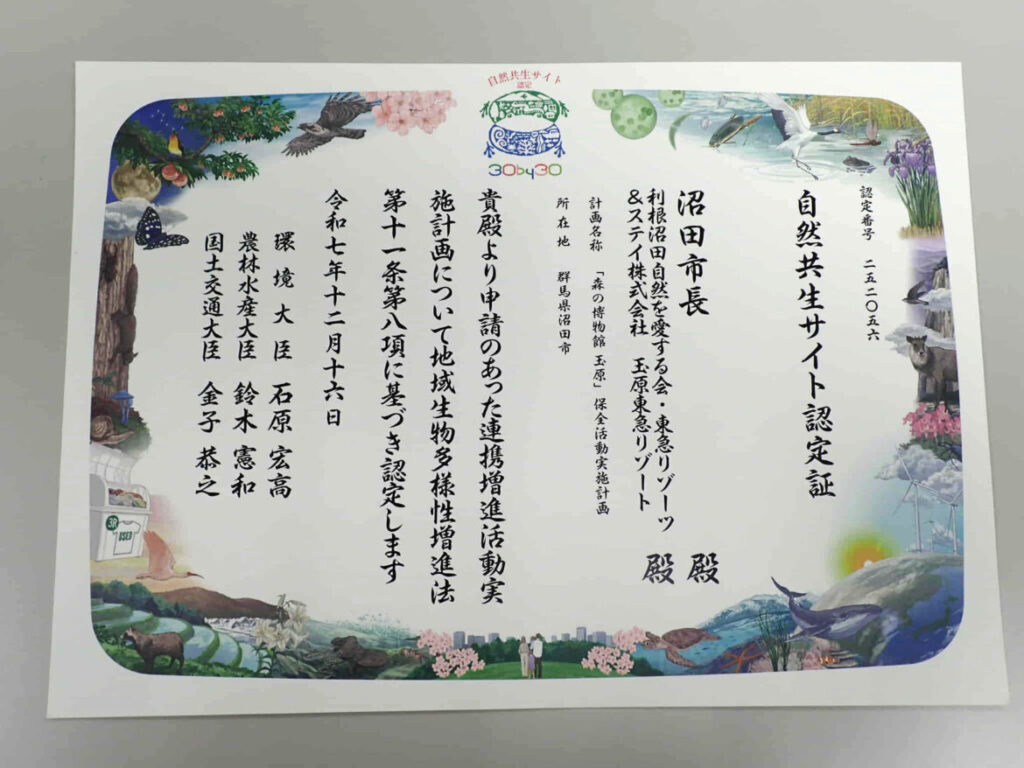 自然共生サイト
認定
30by30
認定番号 二五二〇五六
自然共生サイト認定証
沼田市長 殿
利根沼田自然を愛する会・東急リゾーツ
&ステイ株式会社 玉原東急リゾート 殿
計画名称 「森の博物館 玉原」保全活動実施計画
所在地 群馬県沼田市
貴殿より申請のあった連携増進活動実
施計画について地域生物多様性増進法
第十一条第八項に基づき認定します
令和七年十二月十六日
環境大臣 石原宏高
農林水産大臣 鈴木憲和
国土交通大臣 金子恭之
3R
USED